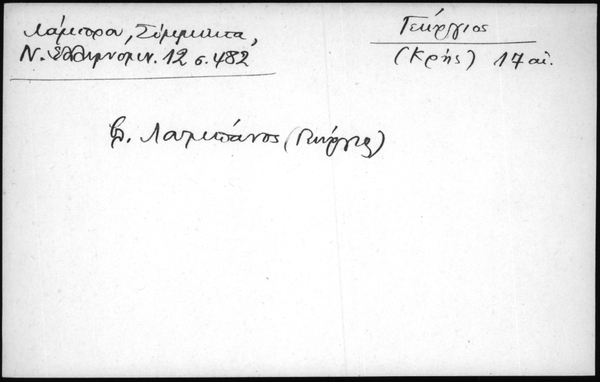 Λάμπρου, Σύμμικτα,
Ν. Ἑλληνομν. 12 σ. 482
Γεώργιος
(Κρής) 17 αἰ.
βλ. Λαμπάνος (Γεώργιος)